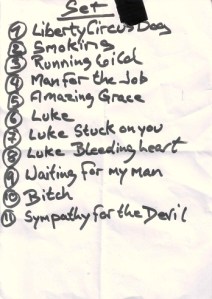 Set
1 Liberty Circus Dog
2 Smoking
3 Running
4 Man for the Job
5 Amazing Grace
6 Luke
7 Luke Stuck on you
8 Luke Bleeding heart
9 Waiting for my man
10 Bitch
11 Sympathy for the Devil